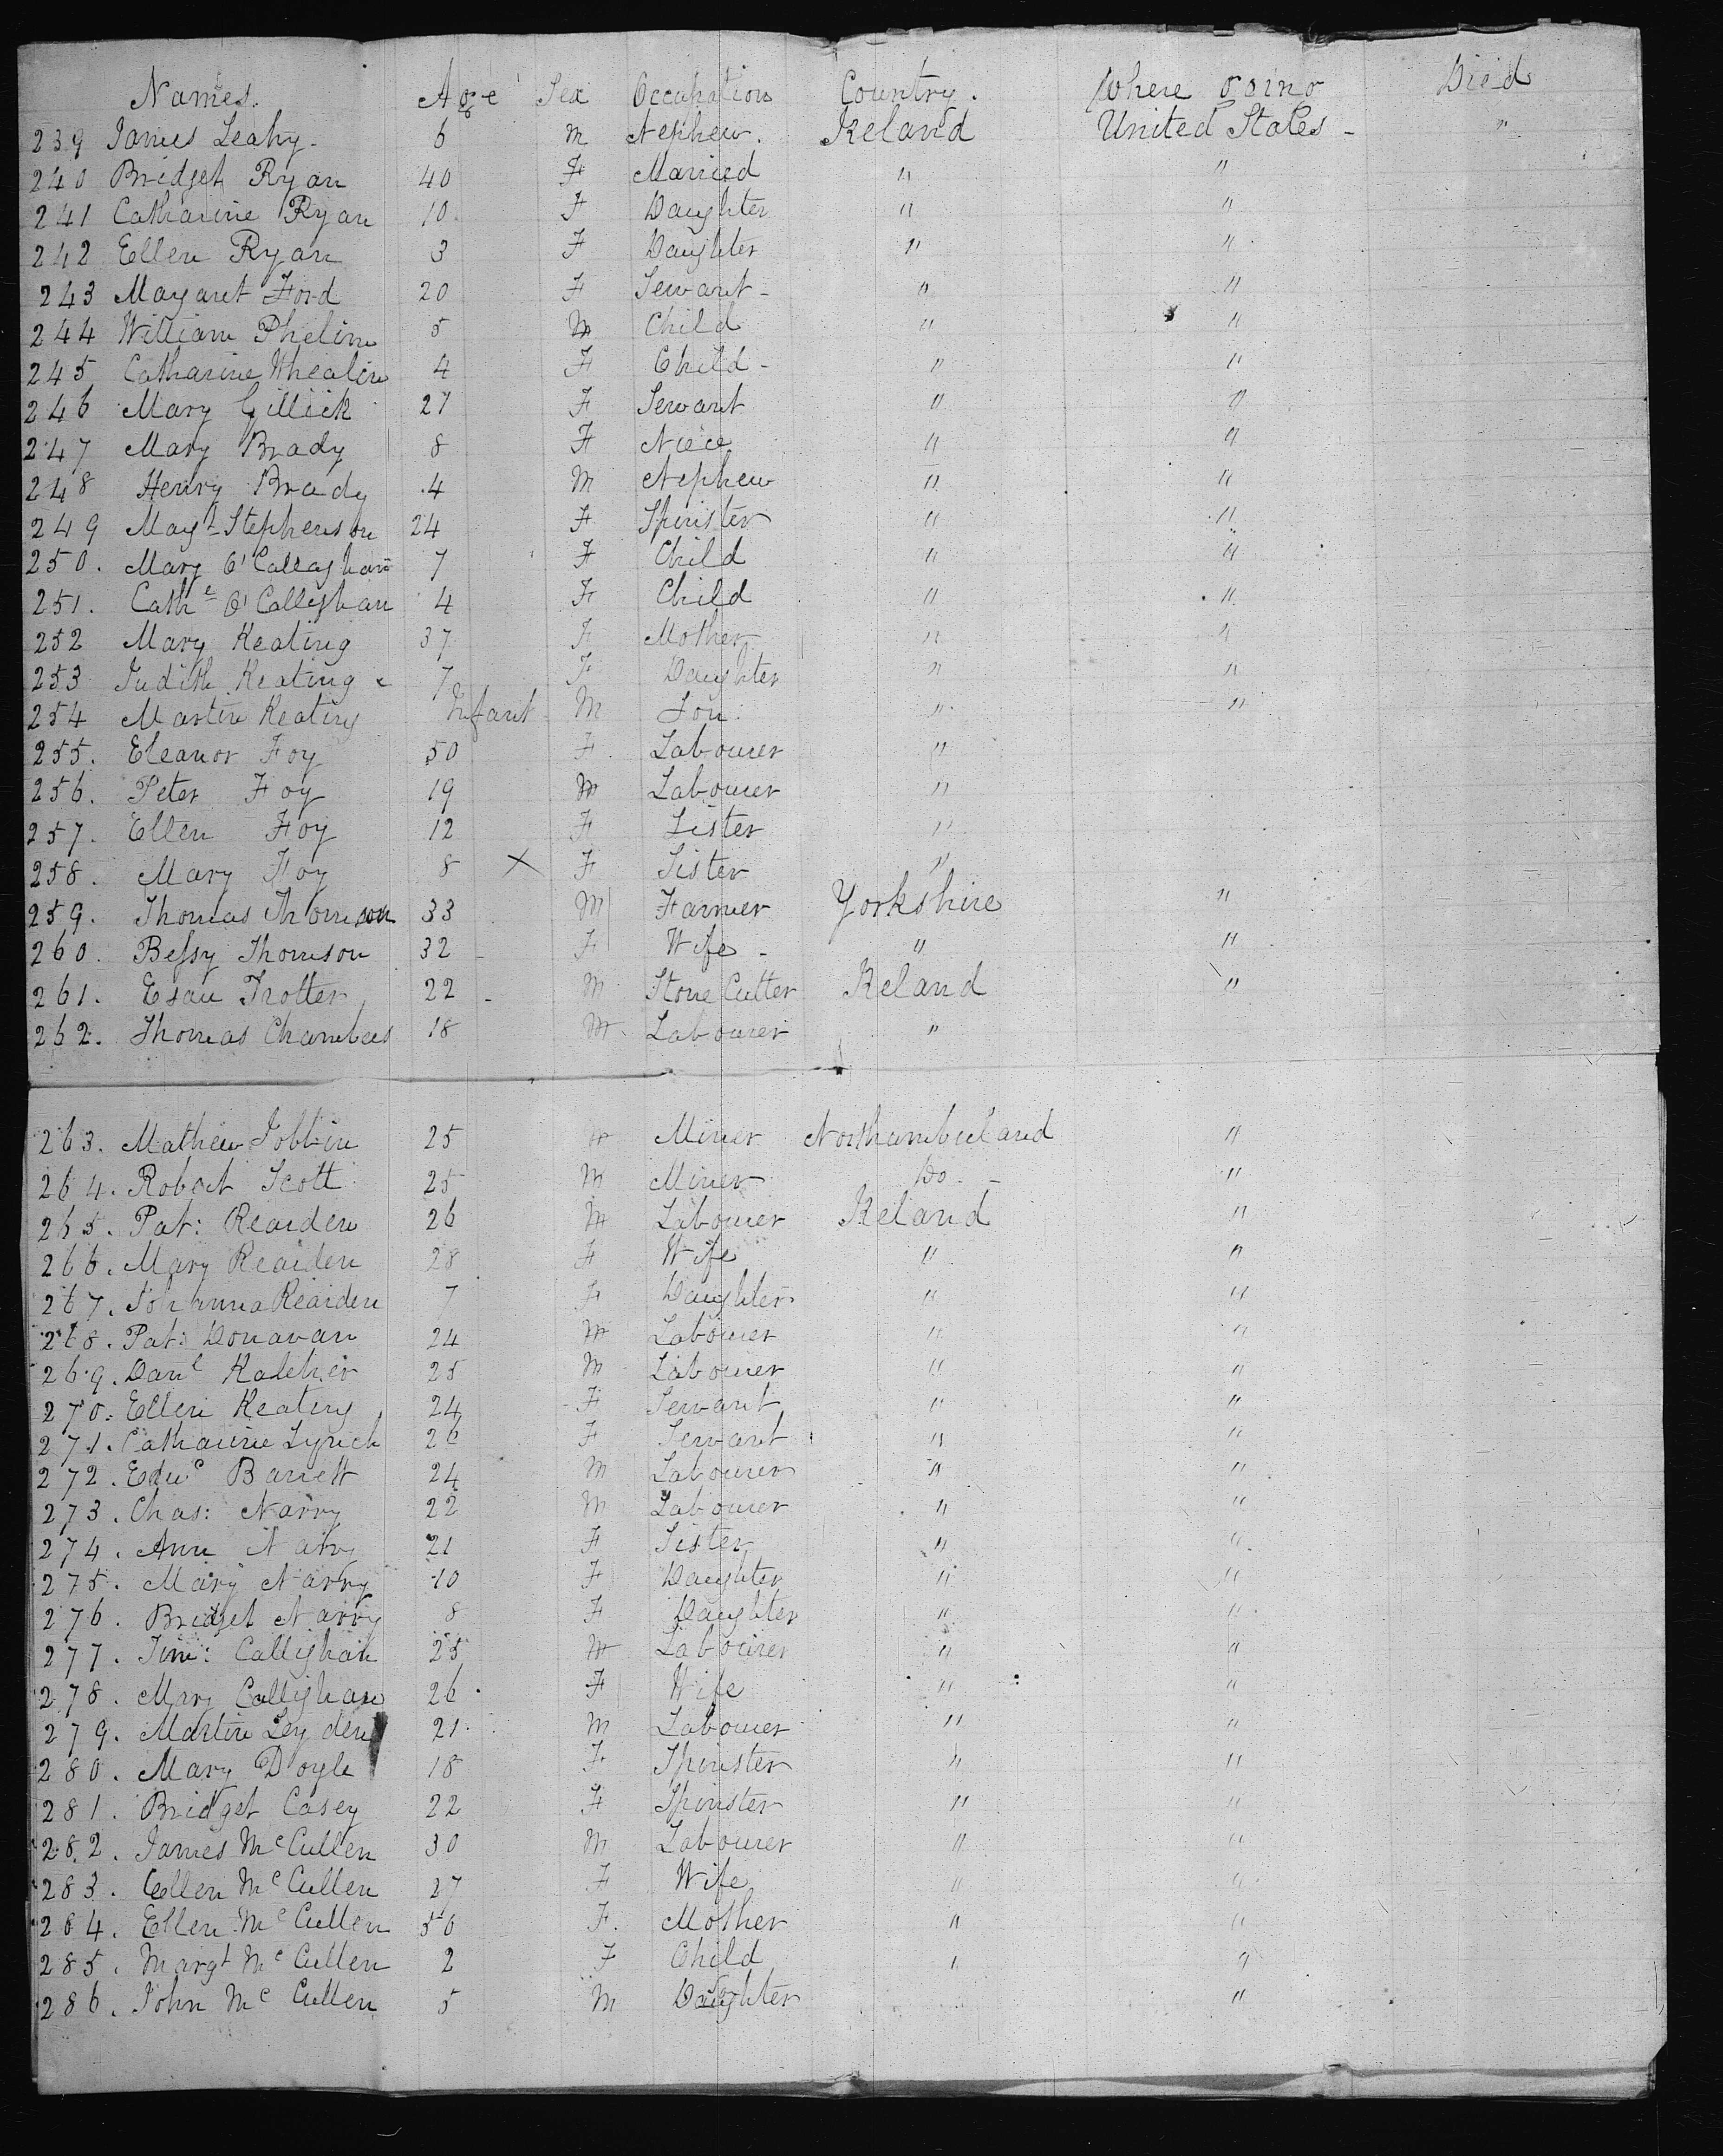 Names. Age Sex Occupation Country. Where going Died
239 James Leahy - 6 M Nephew. Ireland United States - "
240 Bridget Ryan 40 F Married " "
241 Catharine Ryan 10 F Daughter " "
242 Ellen Ryan 3 F Daughter " "
243 Margaret Ford 20 F Servant - " "
244 William Phelin 5 M Child " "
245 Catharine Whealin 4 F Child - " "
246 Mary Gillick 27 F Servant " "
247 Mary Brady 8 F Niece " "
248 Henry Brady 4 M Nephew " "
249 Magt Stephenson 24 F Spinster " "
250. Mary O'Callaghan 7 F Child " "
251. Cathe O'Callighan 4 F Child " "
252 Mary Keating 37 F Mother " "
253 Judith Keating 7 F Daughter " "
254 Martin Keating Infant M Son " "
255. Eleanor Foy 50 F Labourer "
256. Peter Foy 19 M Labourer "
257. Ellen Foy 12 F Sister "
258. Mary Foy 8 X F Sister "
259. Thomas Thomson 33 M Farmer Yorkshire "
260. Bessy Thomson 32 - F Wife - " "
261. Esau Trotter 22 - M Stone Cutter Ireland "
262. Thomas Chambers 18 M Labourer "
263. Mathew Jobbin 25 M Miner Northamberland "
264. Robert Scott 25 M Miner Do - "
265. Pat: Reaiden 26 M Labourer Ireland "
266. Mary Reaiden 28 F Wife " "
267. Johanna Reaiden 7 F Daughter " "
268. Pat: Donavan 24 M Labourer " "
269. Danl Kalehier 25 M Labourer " "
270. Ellen Keating 24 F Servant " "
271. Catharine Lynch 26 F Servant " "
272. Edwd Barrett 24 M Labourer " "
273. Chas: Narry 22 M Labourer " "
274. Ann Narry 21 F Sister " "
275. Mary Narry 10 F Daughter " "
276. Bridget Narry 8 F Daughter " "
277. Tim: Callighan 25 M Labourer " "
278. Mary Callighan 26 F Wife " "
279. Martin Leyden 21 M Labourer " "
280. Mary Doyle 18 F Spinster " "
281. Bridget Casey 22 F Spinster " "
282. James Mc Cullen 30 M Labourer " "
283. Ellen Mc Cullen 27 F Wife " "
284. Ellen Mc Cullen 50 F. Mother " "
285. Margt Mc Cullen 2 F Child " "
286. John Mc Cullen 5 M Daughter "